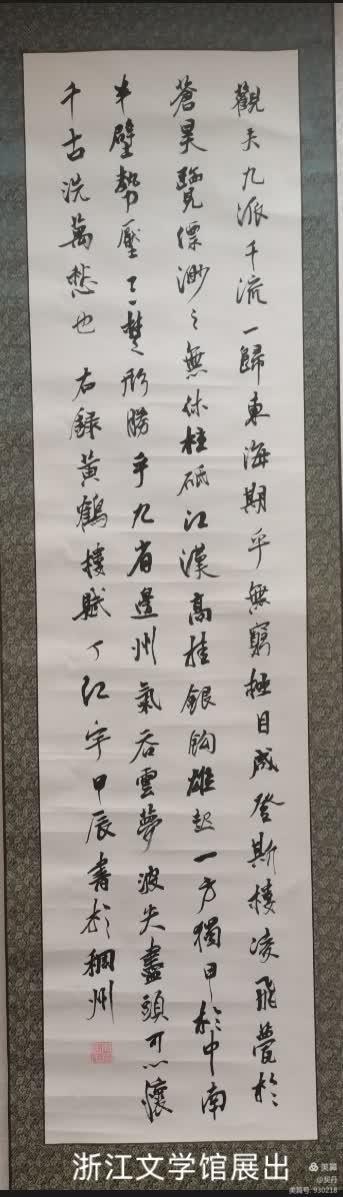 觀夫九派千流一歸東海期乎無窮極目成登斯樓凌飛甍於
蒼昊覽縹渺之無休柱砥江漢高挂銀鈎雄起一方獨甲於中南
半壁勢壓三楚形勝乎九省州氣吞雲夢波失盡頭可以
千古洗萬愁也 右錄黃鶴樓賦 丁红宇甲辰書於稠州
浙江文学馆展出
美篇
美篇号: 930218